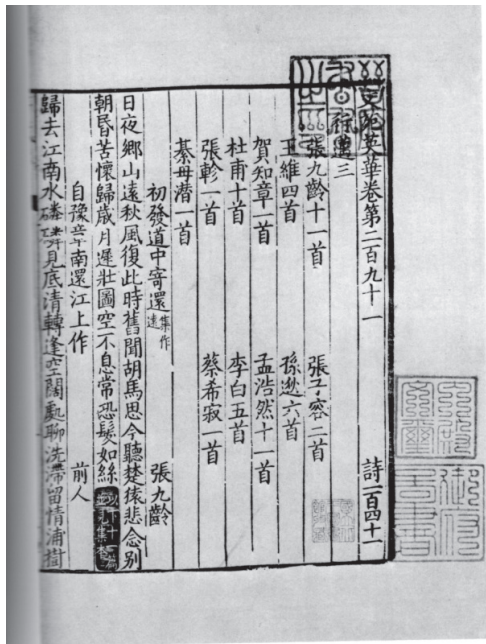 文苑英華卷第二百九十一 詩一百四十一
行邁三
張九齡十一首 張子容二首
王維四首 孫逖六首
賀知章一首 孟浩然十一首
杜甫十首 李白五首
張軫一首 蔡希寂一首
綦毋潛一首
初發道中寄還集作遠 張九齡
日夜鄉山遠秋風復此時舊聞胡馬思今聽楚猿悲念別
朝昏苦懷歸歲月遲壯圖空不息常恐髮如絲以下十一篇並見集本
自豫章南還江上作 前人
歸去江南水磷磷見底清轉逢空闊處聊洗滯留情浦樹
御府圖書